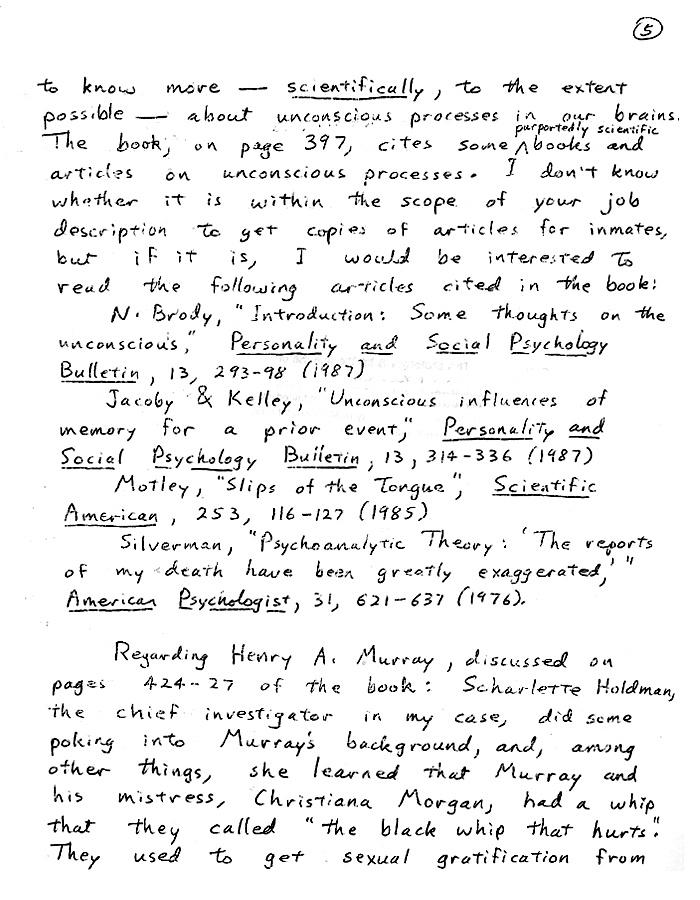 5
to know more — scientifically, to the extent
possible — about unconscious processes in our brains.
purportedly scientific
The book, on page 397, cites some ^ books and
articles on unconscious processes. I don't know
whether it is within the scope of your job
description to get copies of articles for inmates,
but if it is, I would be interested to
read the following articles cited in the book:
N. Brody, "Introduction: Some thoughts on the
unconscious," Personality and Social Psychology
Bulletin, 13, 293-98 (1987)
Jacoby & Kelley, "Unconscious influences of
memory for a prior event," Personality and
Social Psychology Bulletin, 13, 314-336 (1987)
Motley, "Slips of the Tongue", Scientific
American, 253, 116-127 (1985)
Silverman, "Psychoanalytic Theory: 'The reports
of my death have been greatly exaggerated,'"
American Psychologist, 31, 621-637 (1976).
Regarding Henry A. Murray, discussed on
pages 424-27 of the book: Scharlette Holdman,
the chief investigator in my case, did some
poking into Murray's background, and, among
other things, she learned that Murray and
his mistress, Christiana Morgan, had a whip
that they called "the black whip that hurts".
They used to get sexual gratification from